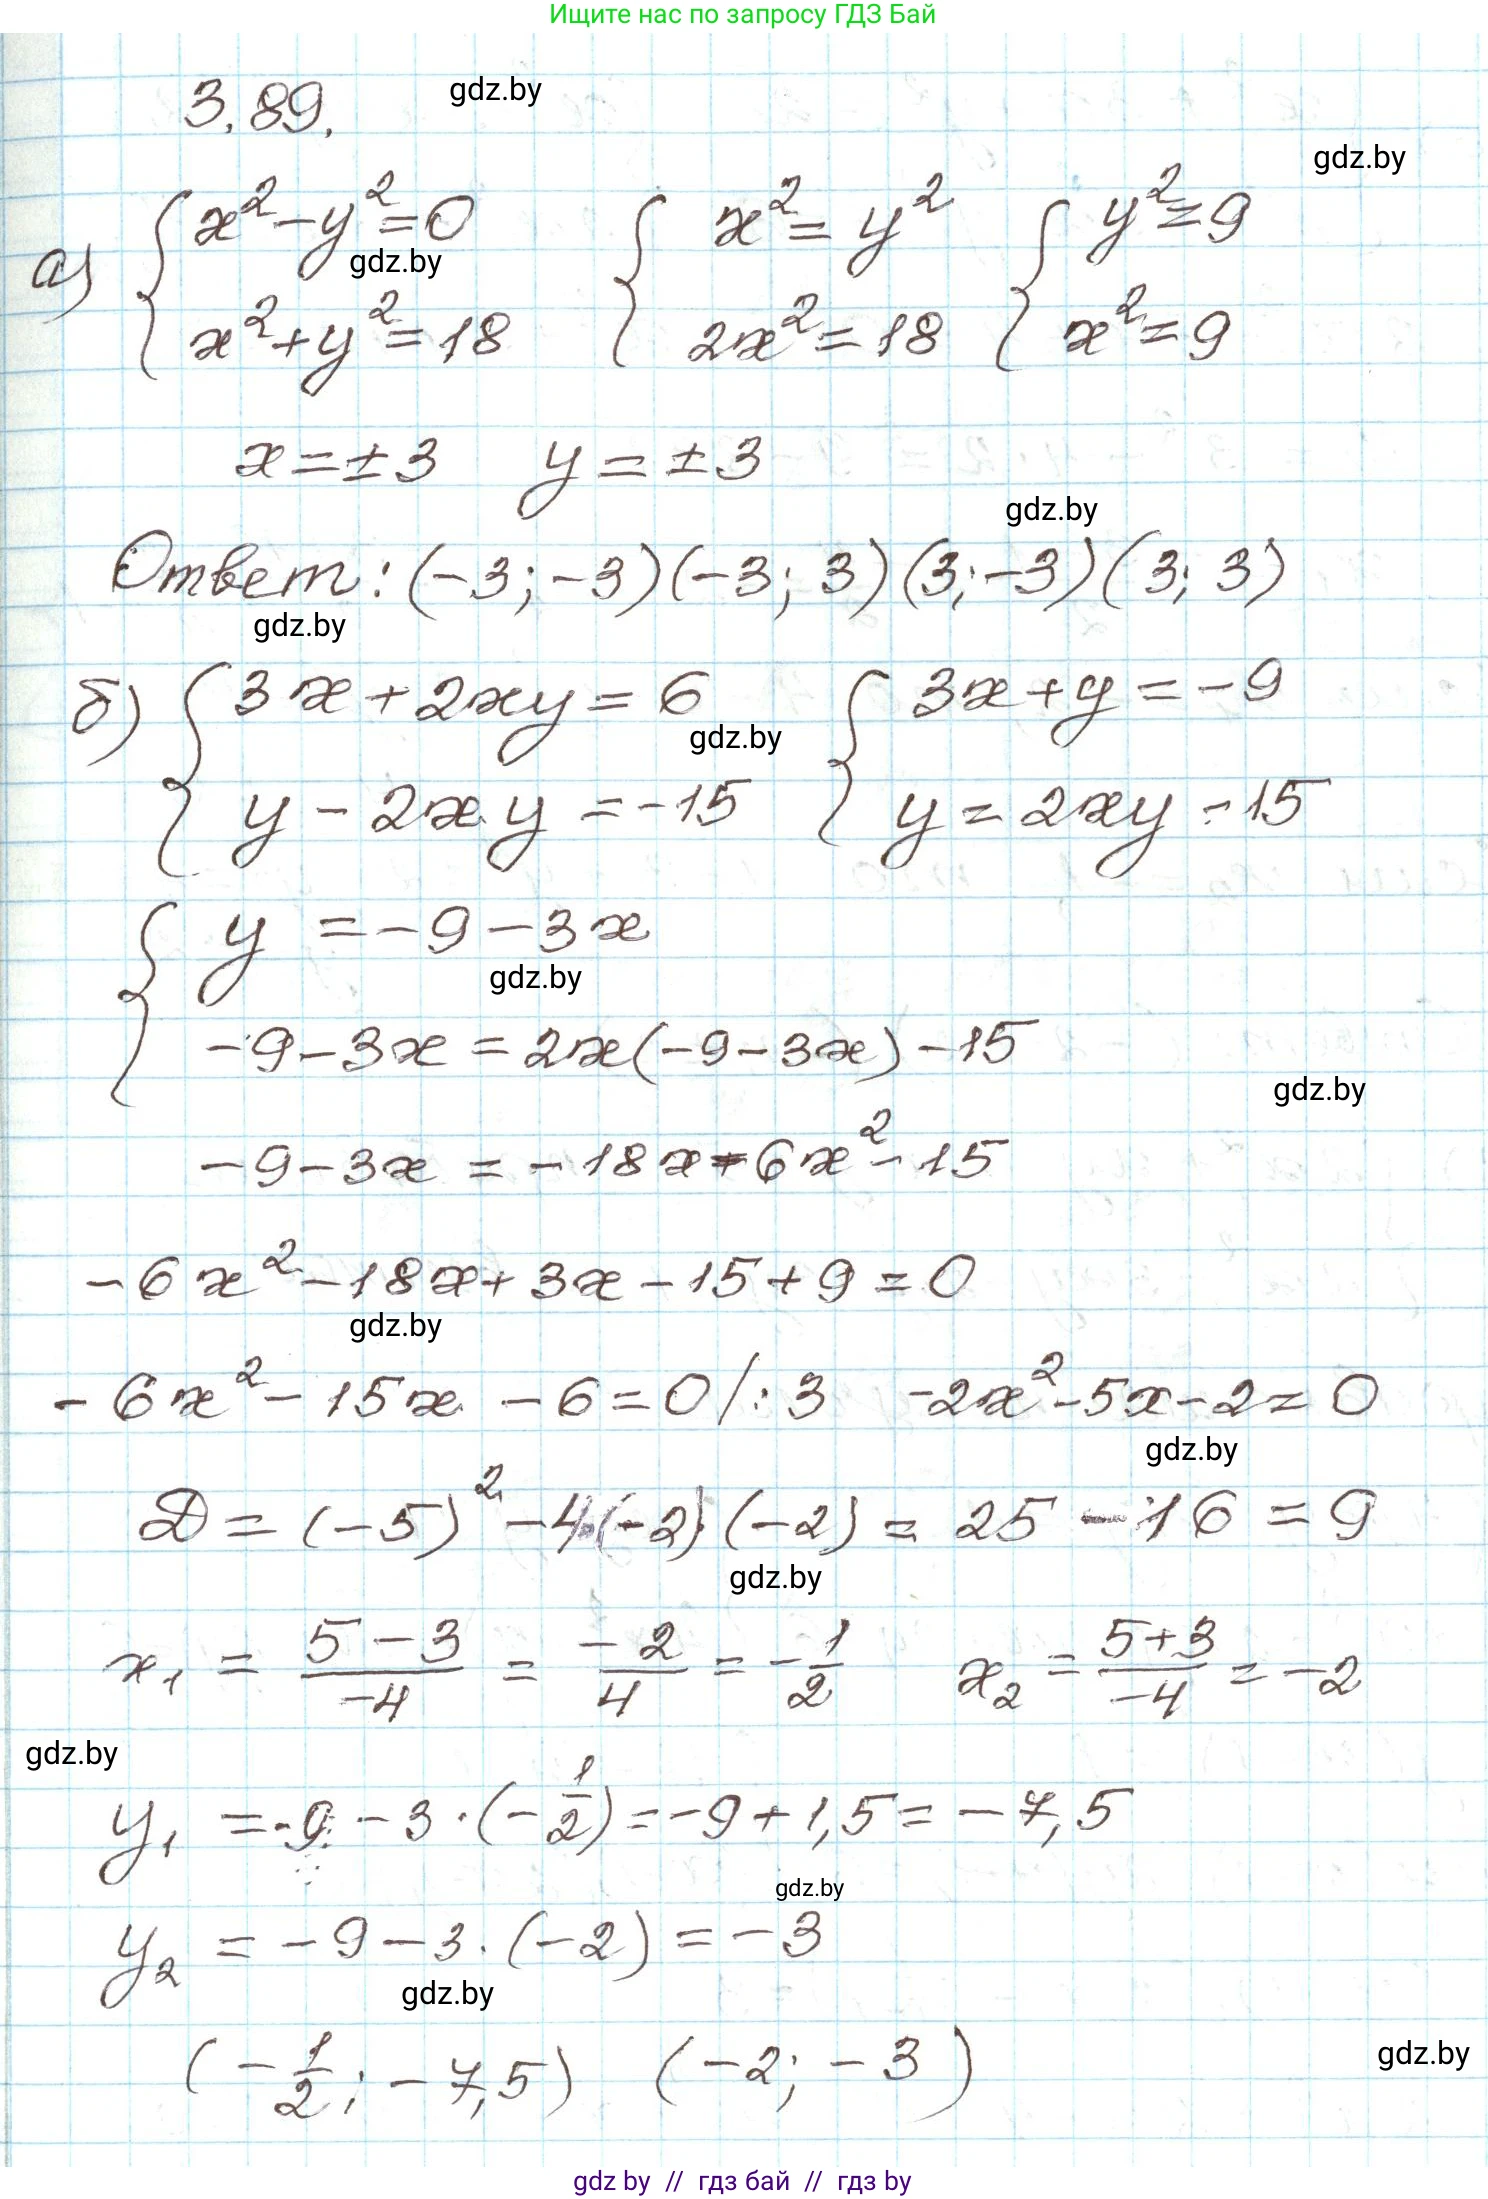 Ищите нас по запросу ГДЗ Бай
3.89.
gdz.by
gdz.by
а) { x² − y² = 0 { x² = y² { y² = 9
gdz.by
x² + y² = 18 2x² = 18 x² = 9
x = ± 3 y = ± 3
gdz.by
Ответ: (−3; −3) (−3; 3) (3; −3) (3; 3)
gdz.by
б) { 3x + 2xy = 6 { 3x + y = −9
gdz.by
y − 2xy = −15 y = 2xy − 15
{ y = −9 − 3x
gdz.by
−9 − 3x = 2x(−9 − 3x) − 15
gdz.by
−9 − 3x = −18x − 6x² − 15
−6x² − 18x + 3x − 15 + 9 = 0
gdz.by
−6x² − 15x − 6 = 0 /: 3 −2x² − 5x − 2 = 0
gdz.by
D = (−5)² − 4·(−2)·(−2) = 25 − 16 = 9
gdz.by
x₁ = (5 − 3)/−4 = −2/4 = −1/2 x₂ = (5 + 3)/−4 = −2
gdz.by
y₁ = −9 − 3 · (−1/2) = −9 + 1,5 = −7,5
gdz.by
y₂ = −9 − 3 · (−2) = −3
gdz.by
(−1/2; −7,5) (−2; −3)
gdz.by
gdz by // гдз бай // гдз by